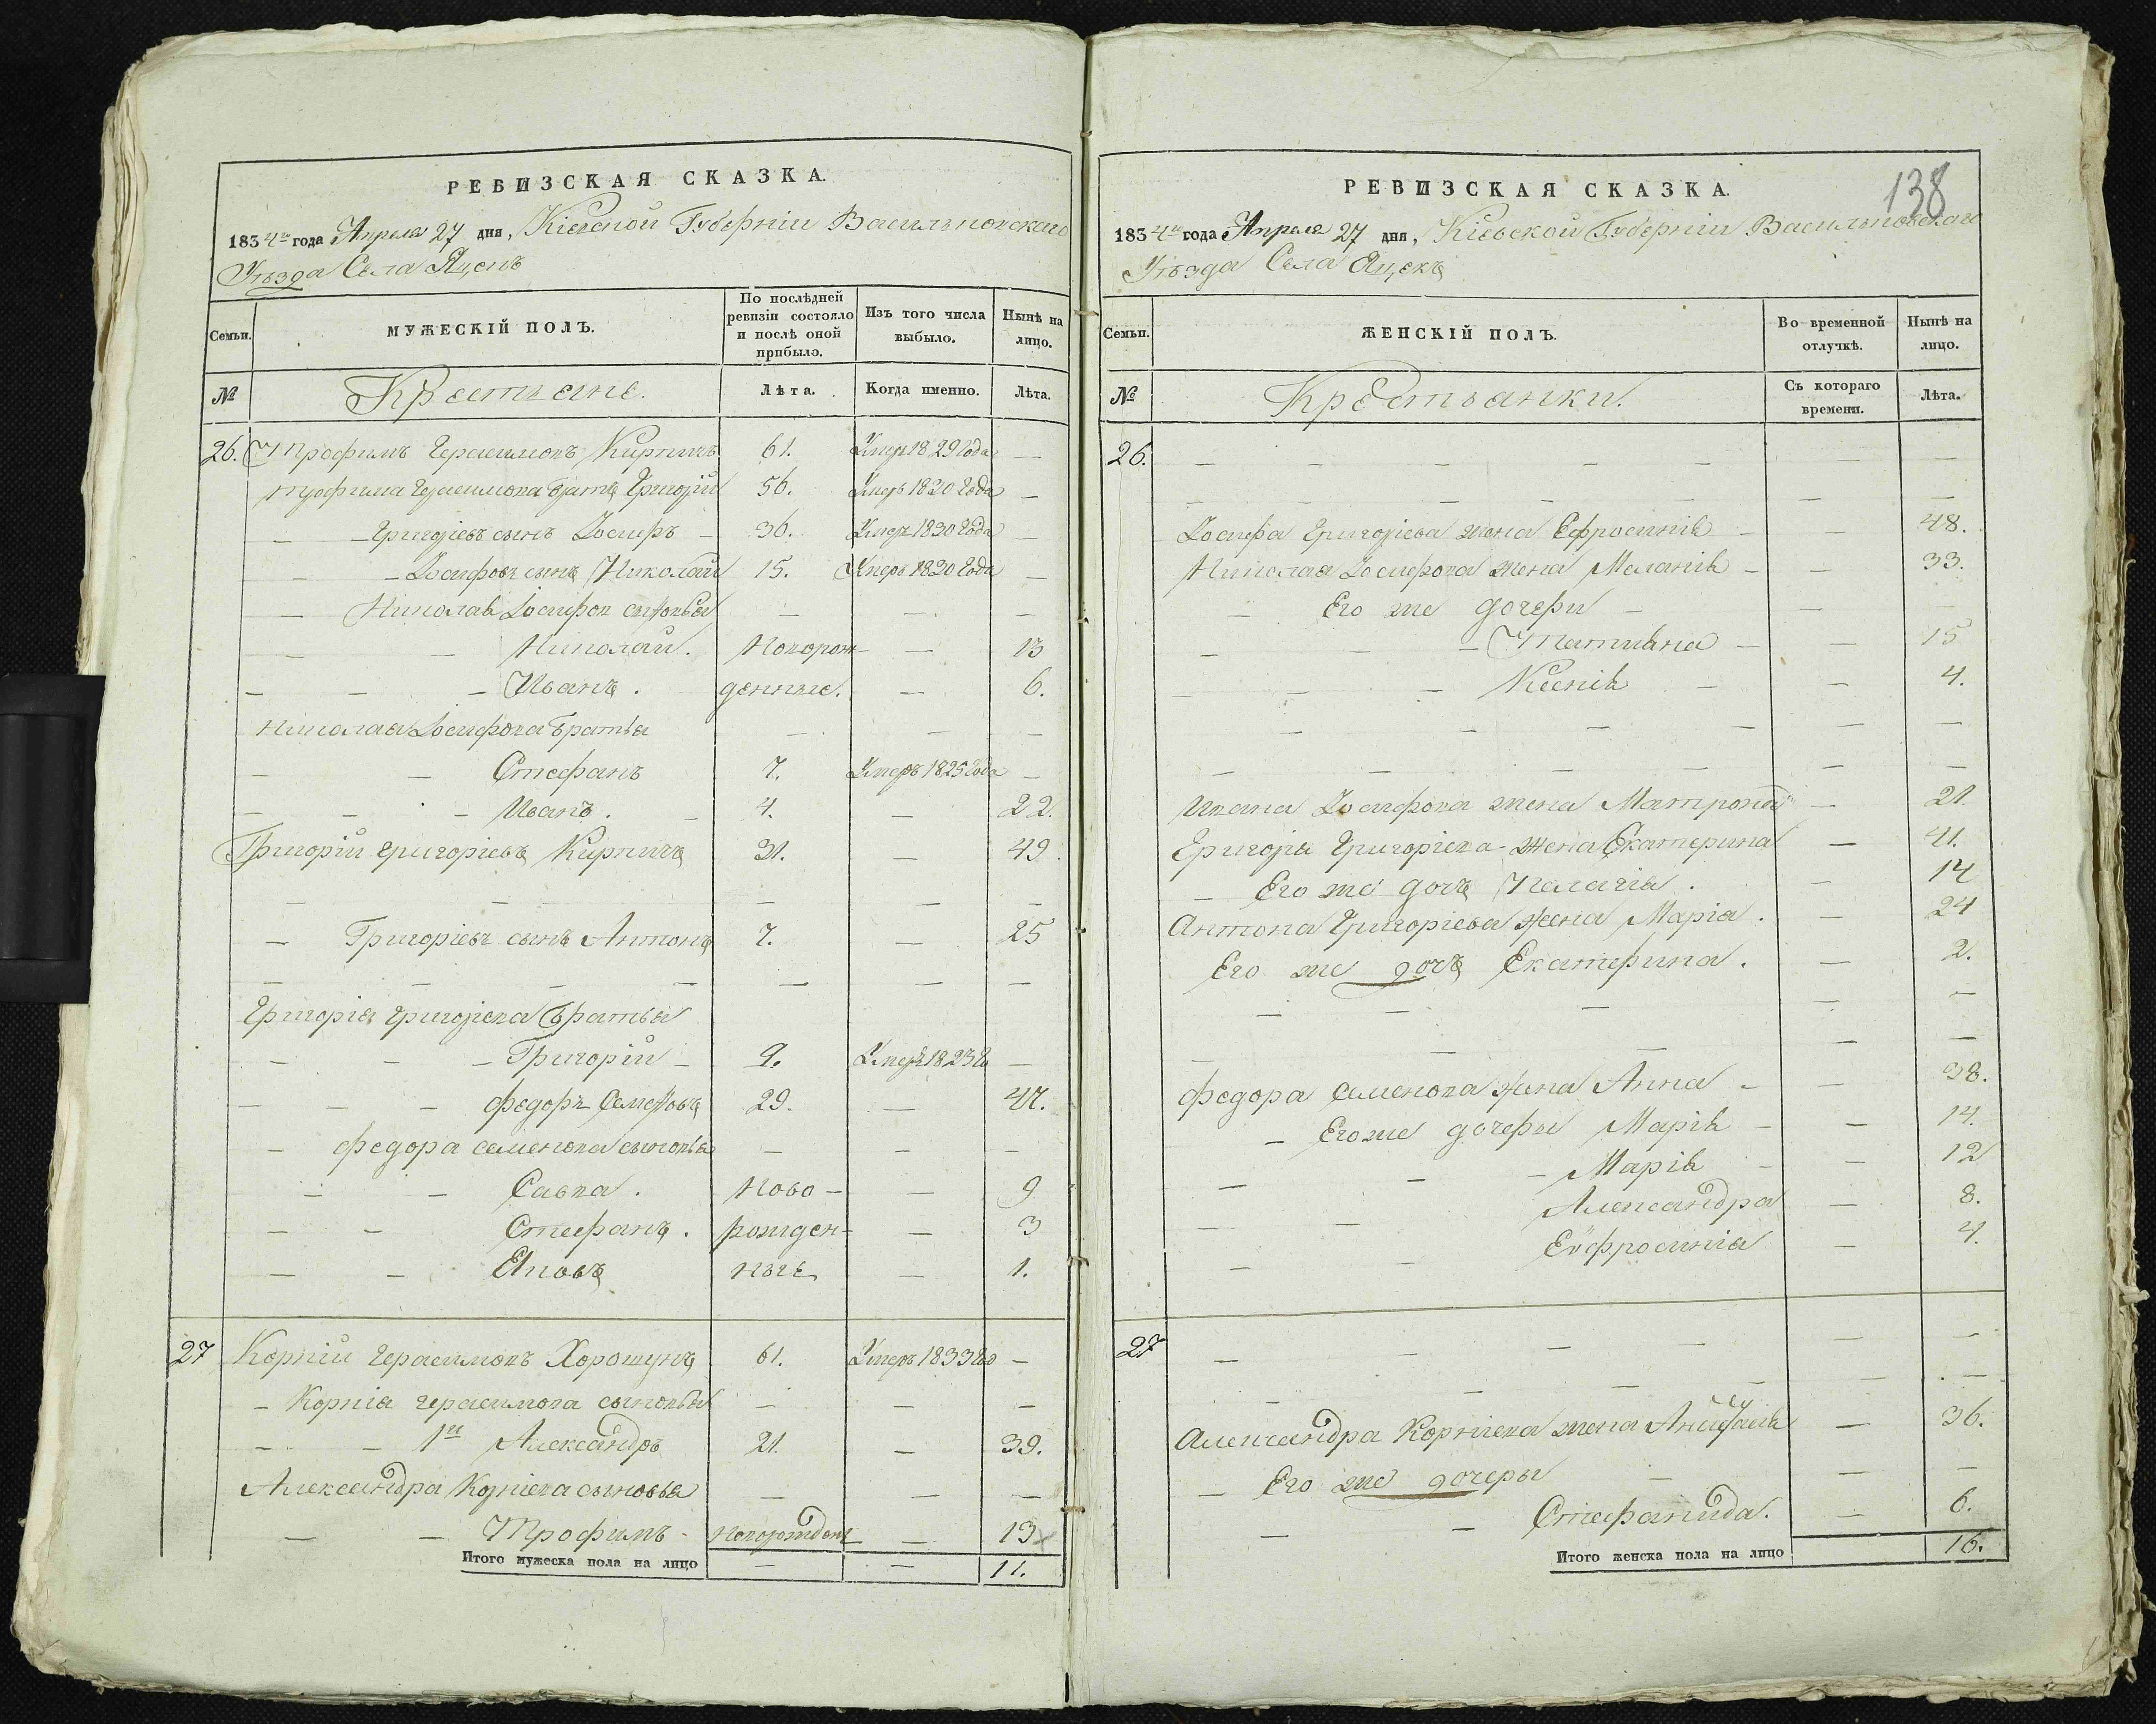 РЕВИЗСКАЯ СКАЗКА.
1834го года Апреля 27 дня, Кіевской Губерніи Васильковскаго
Уѣзда Села Яцекъ
Семьи. МУЖЕСКІЙ ПОЛЪ. По послѣдней ревизіи состояло и послѣ оной прибыло. Изъ того числа выбыло. Нынѣ на лицо.
№ Крестьяне. Лѣта. Когда именно. Лѣта.
26. Трофимъ Герасимовъ Кирпичъ 61. Умеръ 1829 Года —
Трофима Герасимова братъ Григорій 56. Умеръ 1820 Года —
— — Григоріевъ сынъ Іосифъ — 36. Умеръ 1830 Года —
— — Іосифовъ сынъ Николай 15. Умеръ 1830 Года —
— Николая Іосифов сыновья — — —
— — Николай. Новорож- — 13
— — — Иванъ. денные. — 6.
Николая Іосифова братья — — —
— — Стефанъ 7. Умеръ 1825 Года —
— — — Иванъ. — 4. — 22.
Григорій Григоріевъ Кирпичъ 31. — 49.
— — — — — —
— Григоріевъ сынъ Антонъ 7. — 25
— — — — — — —
Григорія Григоріева братья
— — — Григорій — 9. Умеръ 1823 Го —
— — — Федоръ Семеновъ 29. — 47.
— Федора Семенова сыновья — — —
— — Савва. Ново- — 9
— — Стефанъ. рожден- — 3
— — ные — 1.
27 Корній Герасимовъ Хорошунъ 61. Умеръ 1833 Го —
— Корнія Герасимова сыновья — — —
— — 1й Александръ 21. — 39.
Александра Корніева сыновья — — —
— — Трофимъ - Новорожден — 13
Итого мужеска пола на лицо — — 11.
138
РЕВИЗСКАЯ СКАЗКА.
1834го года Апреля 27 дня, Кіевской Губерніи Васильковскаго
Уѣзда Села Яцекъ
Семьи. ЖЕНСКІЙ ПОЛЪ. Во временной отлучкѣ. Нынѣ на лицо.
№ Крестьянки. Съ котораго времени. Лѣта.
26. — — — — — — —
— — — — — — —
Іосифа Григоріева жена Ефросинія — — 48.
Николая Іосифова жена Меланія — — 33.
— Его же дочери — — —
— — — Татиана — — 15
— — — Ксенія — — 4.
— — — — — —
— — — — — — —
Ивана Іосифова жена Матрона — 21.
Григорія Григоріева жена Екатерина — 41.
— Его же дочь Пелагія. — 14
Антона Григоріева жена Марія. — 24
Его же дочь Екатерина. — 2.
— — — — —
— — — — —
Федора Семенова жена Анна — — 38.
— Его же дочери Марія — — 14.
— — — Марія — — 12
— — Александра — 8.
— — Ефросинія — 4.
27 — — — — —
— — — — — —
Александра Корніева жена — 36.
— Его же дочеры — — —
— — Стефанида. — 6.
Итого женска пола на лицо 16.